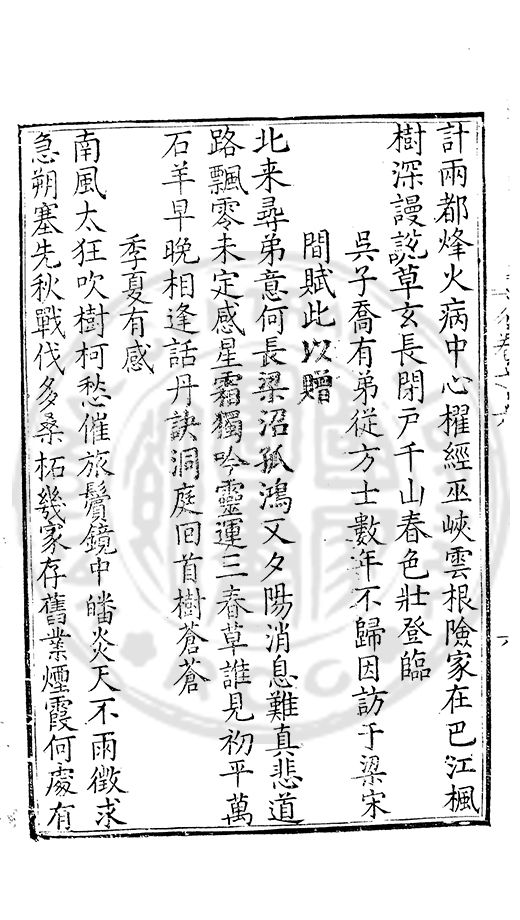 計兩都烽火病中心櫂經巫峽雲根險家在巴江楓
樹深謾說草玄長閉戸千山春色壯登臨
吳子喬有弟從方士數年不歸因訪于梁宋
間賦此以贈
北来尋弟意何長梁沼孤鴻又夕陽消息難真悲道
路飄零未定感星霜獨吟靈運三春草誰見初平萬
石羊早晩相逢話丹訣洞庭回首樹蒼蒼
季夏有感
南風太狂吹樹柯愁催旅鬢鏡中皤炎天不雨徵求
急朔塞先秋戰伐多桑柘幾家存舊業煙霞何處有